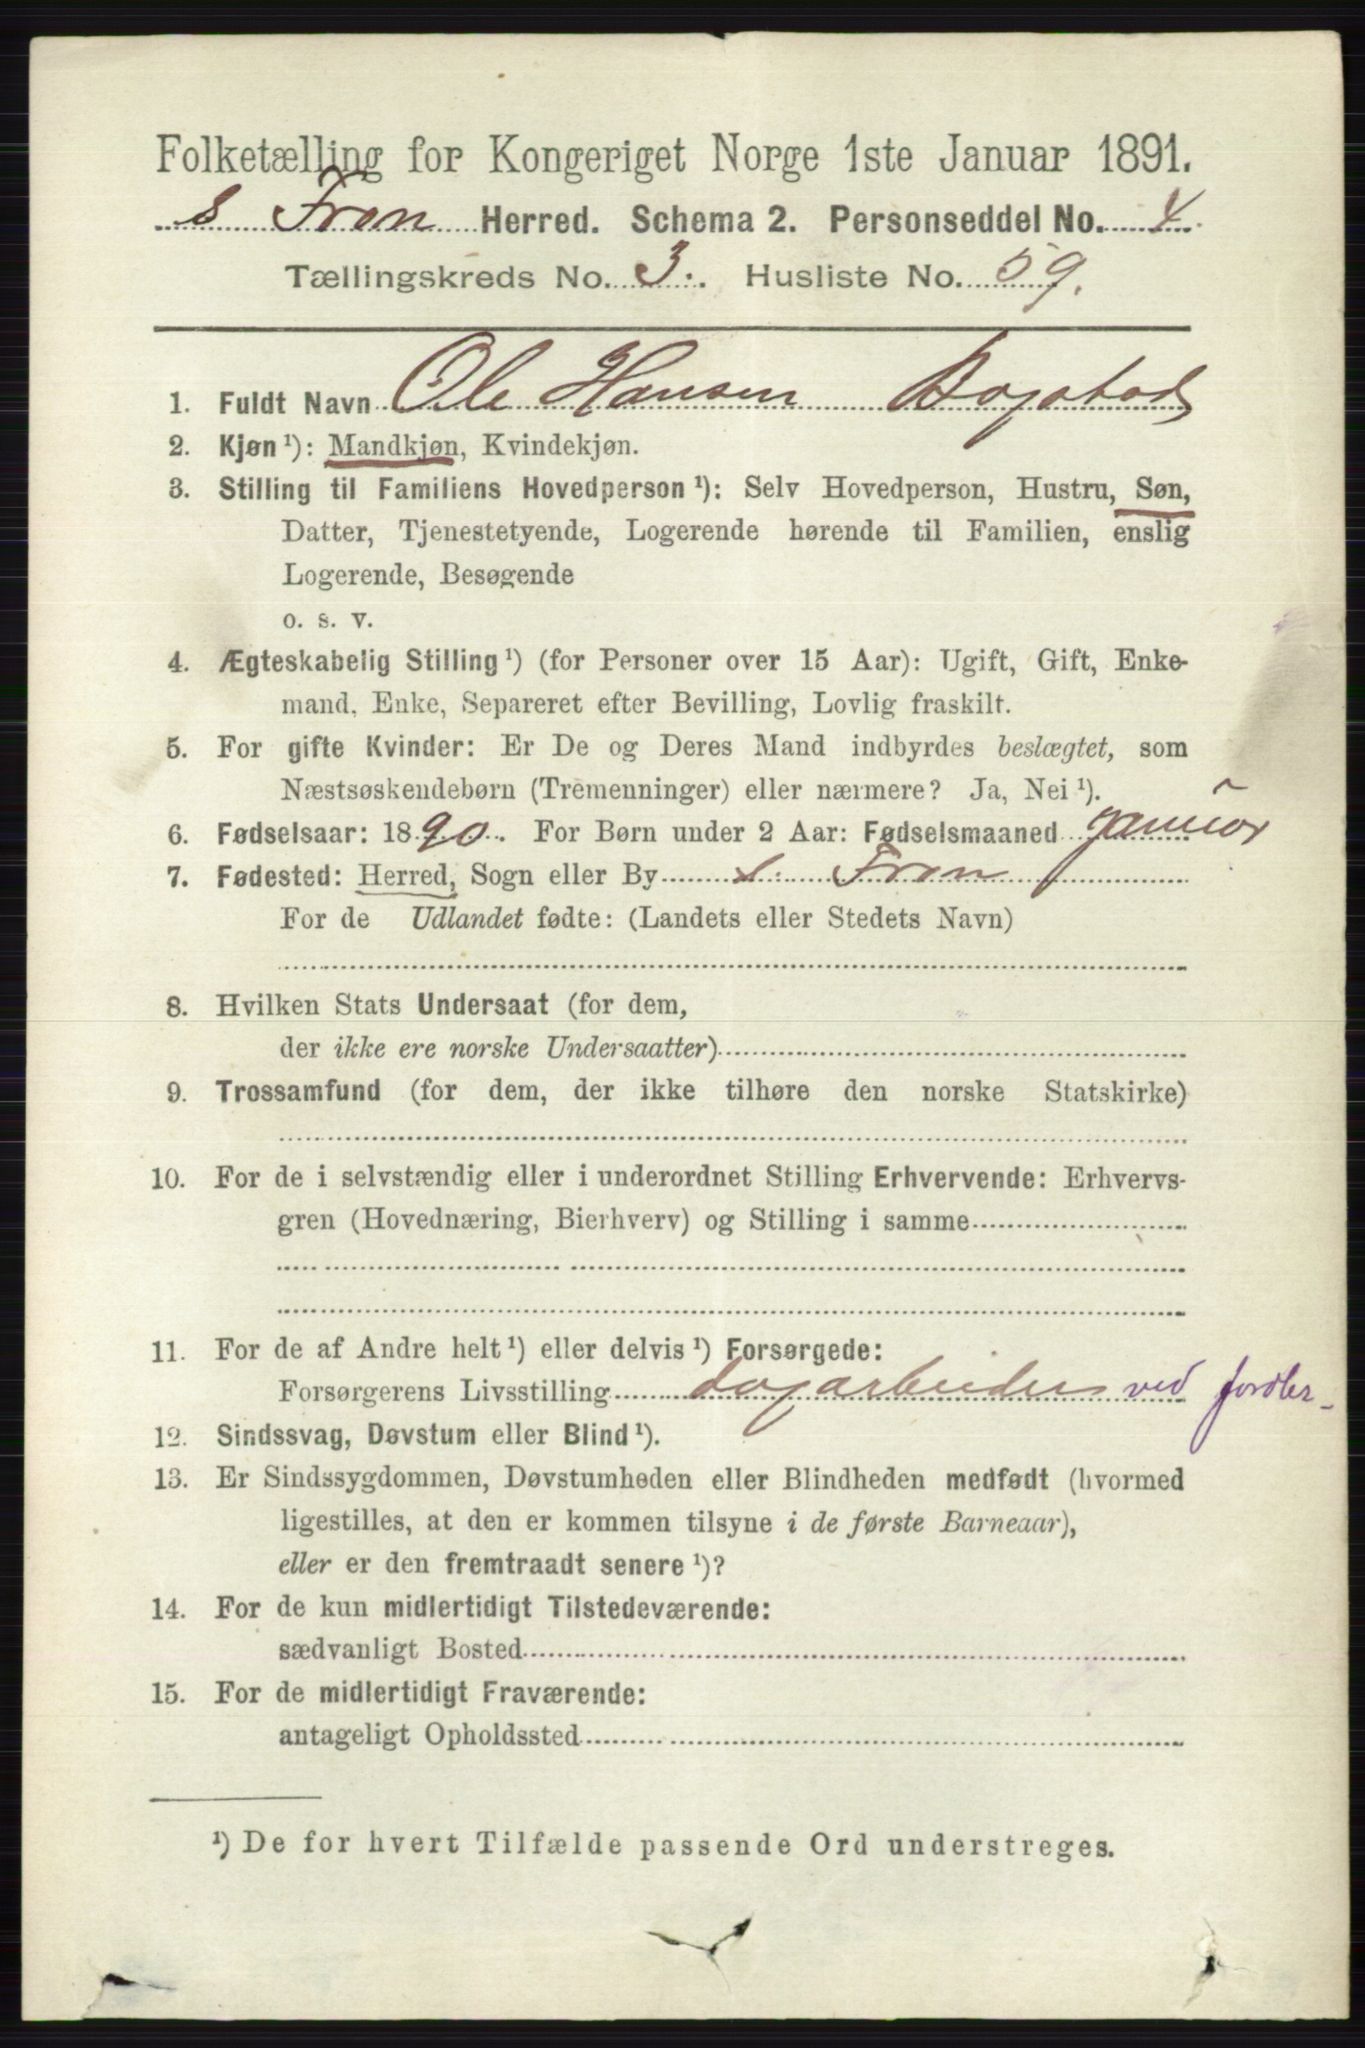 Folketælling for Kongeriget Norge 1ste Januar 1891.
S Fron Herred. Schema 2. Personseddel No. 4.
Tællingskreds No. 3. Husliste No. 59.
1. Fuldt Navn Ole Hansen Bogstad
2. Kjøn ¹): Mandkjøn, Kvindekjøn.
3. Stilling til Familiens Hovedperson ¹): Selv Hovedperson, Hustru, Søn,
Datter, Tjenestetyende, Logerende hørende til Familien, enslig
Logerende, Besøgende
o. s. v.
4. Ægteskabelig Stilling ¹) (for Personer over 15 Aar): Ugift, Gift, Enke-
mand, Enke, Separeret efter Bevilling, Lovlig fraskilt.
5. For gifte Kvinder: Er De og Deres Mand indbyrdes beslægtet, som
Næstsøskendebørn (Tremenninger) eller nærmere? Ja, Nei ¹).
6. Fødselsaar: 1890. For Børn under 2 Aar: Fødselsmaaned januar
7. Fødested: Herred, Sogn eller By S. Fron
For de Udlandet fødte: (Landets eller Stedets Navn)
8. Hvilken Stats Undersaat (for dem,
der ikke ere norske Undersaatter)
9. Trossamfund (for dem, der ikke tilhøre den norske Statskirke)
10. For de i selvstændig eller i underordnet Stilling Erhvervende: Erhvervs-
gren (Hovednæring, Bierhverv) og Stilling i samme
11. For de af Andre helt ¹) eller delvis ¹) Forsørgede:
Forsørgerens Livsstilling dagarbeider ved jordbr_
12. Sindssvag, Døvstum eller Blind ¹).
13. Er Sindssygdommen, Døvstumheden eller Blindheden medfødt (hvormed
ligestilles, at den er kommen tilsyne i de første Barneaar),
eller er den fremtraadt senere ¹)?
14. For de kun midlertidigt Tilstedeværende:
sædvanligt Bosted
15. For de midlertidigt Fraværende:
antageligt Opholdssted
¹) De for hvert Tilfælde passende Ord understreges.